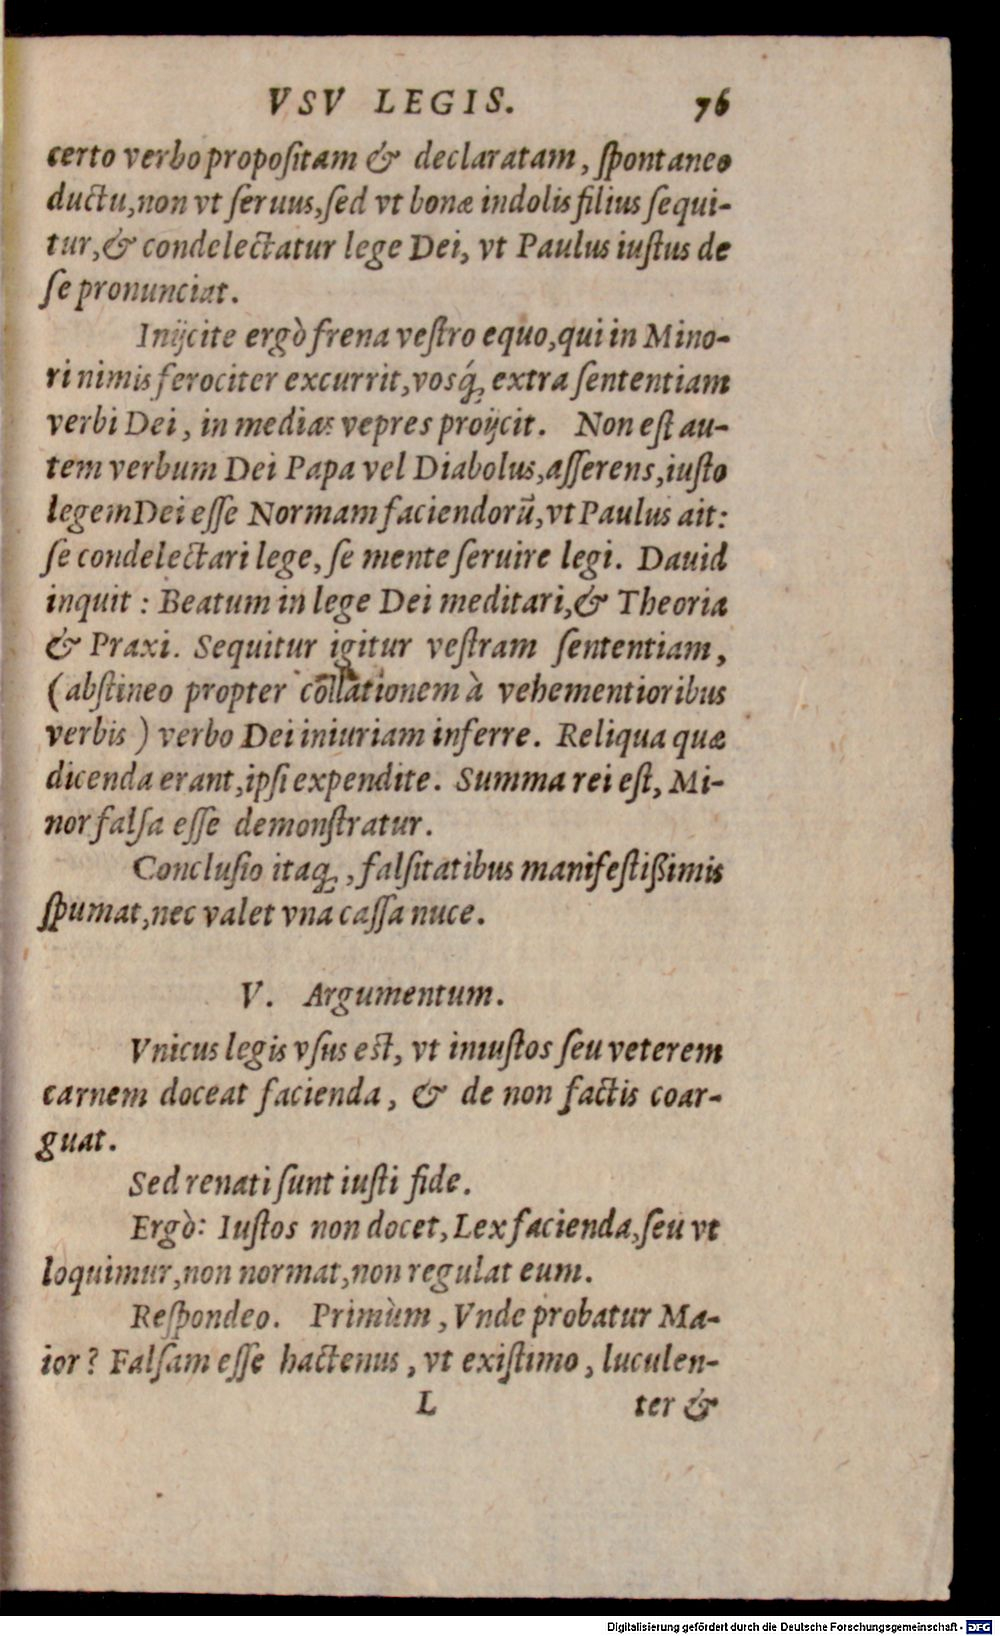 VSV LEGIS. 76
certo verbo propoſitam & declaratam, ſpontaneo
ductu, non vt ſeruus, ſed vt bonæ indolis filius ſequi-
tur, & condelectatur lege Dei, vt Paulus iuſtus de
ſe pronunciat.
Inijcite ergò frena veſtro equo, qui in Mino-
ri nimis ferociter excurrit, vosq́; extra ſententiam
verbi Dei, in medias vepres proijcit. Non eſt au-
tem verbum Dei Papa vel Diabolus, aſſerens, iuſto
legem Dei eſſe Normam faciendorũ, vt Paulus ait:
ſe condelectari lege, ſe mente ſeruire legi. Dauid
inquit: Beatum in lege Dei meditari, & Theoria
& Praxi. Sequitur igitur veſtram ſententiam,
(abſtineo propter collationem à vehementioribus
verbis) verbo Dei iniuriam inferre. Reliqua quæ
dicenda erant, ipſi expendite. Summa rei eſt, Mi-
nor falſa eſſe demonſtratur.
Concluſio itaq;, falſitatibus manifeſtißimis
ſpumat, nec valet vna caſſa nuce.
V. Argumentum.
Vnicus legis vſus eſt, vt iniuſtos ſeu veterem
carnem doceat facienda, & de non factis coar-
guat.
Sed renati ſunt iuſti fide.
Ergò: Iuſtos non docet, Lex facienda, ſeu vt
loquimur, non normat, non regulat eum.
Reſpondeo. Primùm, Vnde probatur Ma-
ior? Falſam eſſe hactenus, vt exiſtimo, luculen-
L ter &
Digitalisierung gefördert durch die Deutsche Forschungsgemeinschaft - DFG